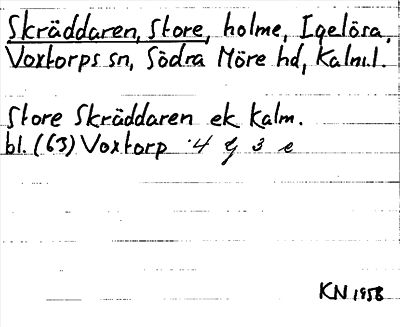 Skräddaren, Store, holme, Igelösa,
Voxtorps sn, Södra Möre hd, Kalm.l.
Store Skräddaren ek Kalm.
bl. (63) Voxtorp 4 G 3 e
KN 1958